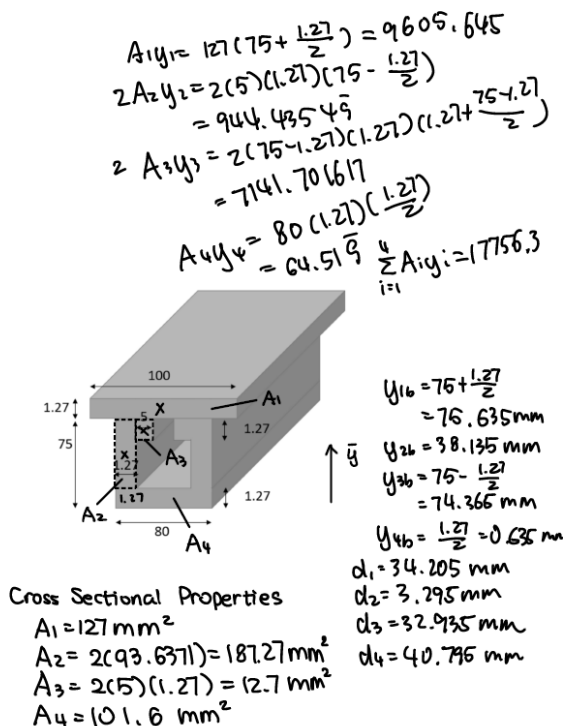 A₁y₁= 127(75+ 1.27/2) = 9605.645
2A₂y₂=2(5)(1.27)(75- 1.27/2)
= 944.43549̄
2 A₃y₃= 2(75-1.27)(1.27)(1.27+ 75-1.27/2)
= 7141.701617
A₄y₄= 80(1.27)(1.27/2)
= 64.516̄
4∑i=1 Aiyi=17756.3
100
1.27
x
A₁
5
x
1.27
75
x
1.27
A₃
1.27
1.27
A₂
80
A₄
ȳ
y₁b =75+ 1.27/2
= 75.635mm
y₂b = 38.135mm
y₃b= 75- 1.27/2
= 74.365 mm
y₄b = 1.27/2 =0.635 mm
d₁=34.205 mm
d₂= 3.295mm
d₃=32.935mm
d₄=40.795 mm
Cross Sectional Properties
A₁ =127 mm²
A₂= 2(93.6371)=187.27mm²
A₃ = 2(5)(1.27) = 12.7 mm²
A₄ =101.6 mm²